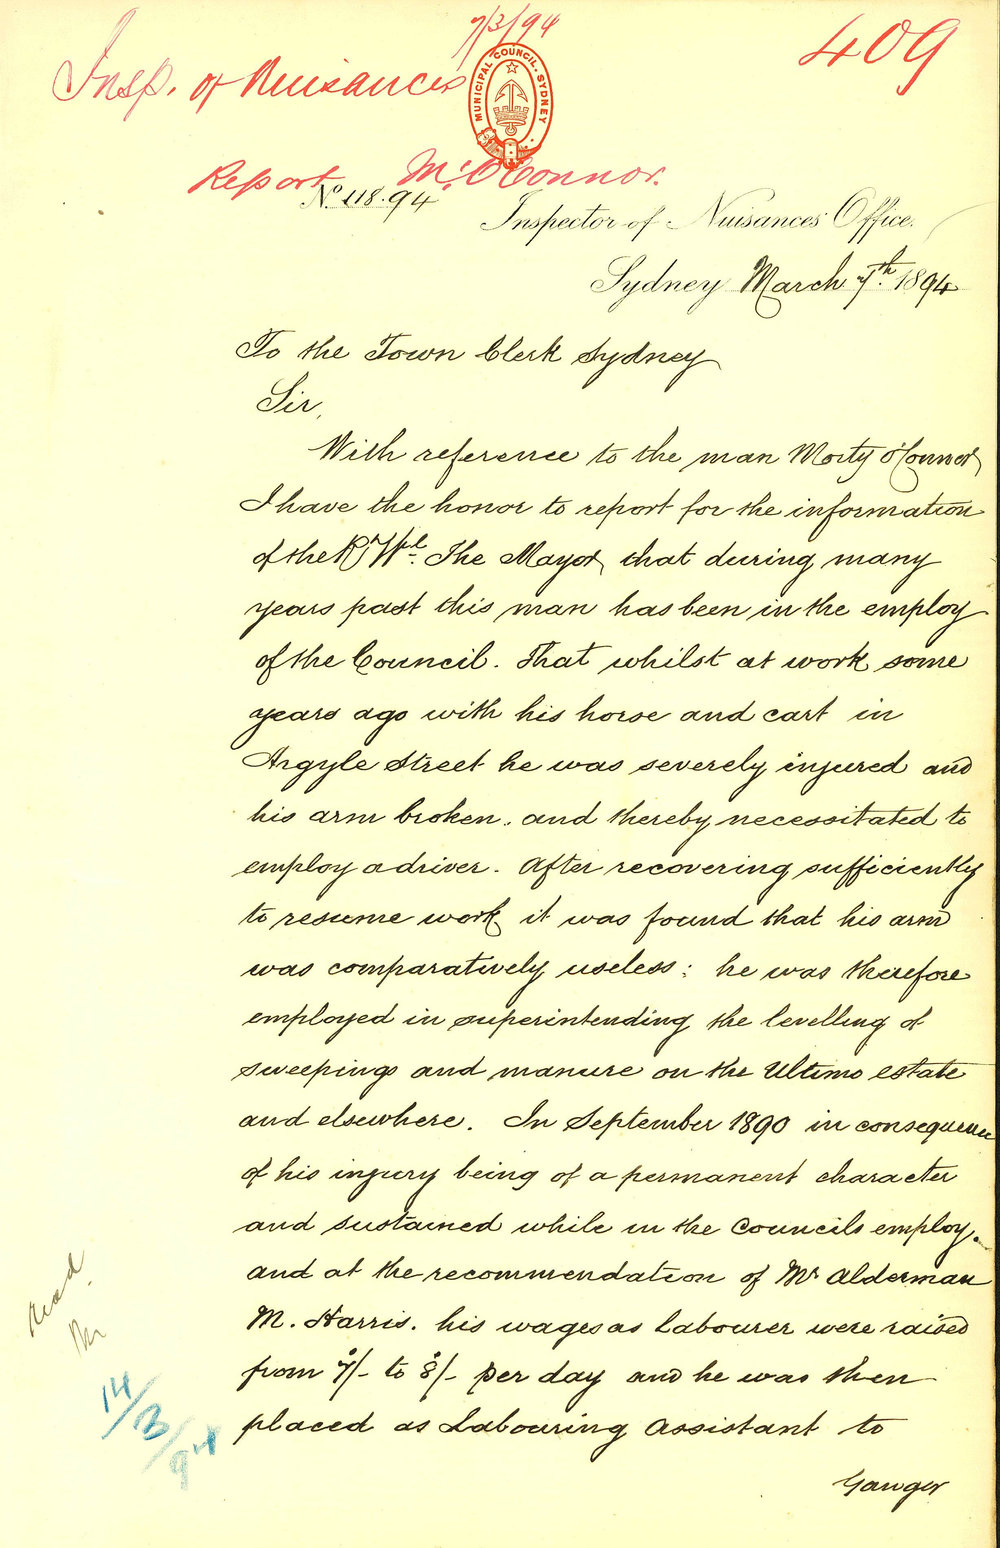 7/3/94
409
Insp. of Nuisances
MUNICIPAL COUNCIL. SYDNEY
Report McOConnor.
No. 118.94
Inspector of Nuisances' Office.
Sydney March 7th. 1894
To the Town Clerk Sydney
Sir,
With reference to the man Morty O'Connor
I have the honor to report for the information
of the Rt. Wpl. The Mayor, that during many
years past this man has been in the employ
of the Council. That whilst at work some
years ago with his horse and cart in
Argyle Street he was severely injured and
his arm broken, and thereby necessitated to
employ a driver. After recovering sufficiently
to resume work it was found that his arm
was comparatively useless: he was therefore
employed in superintending the levelling of
sweepings and manure on the Ultimo estate
and elsewhere. In September 1890 in consequence
of his injury being of a permanent character
and sustained while in the Councils employ,
and at the recommendation of Mr Alderman
M. Harris. his wages as labourer were raised
from 7/- to 8/- per day and he was then
placed as Labouring Assistant to
Ganger
read
14/3/94